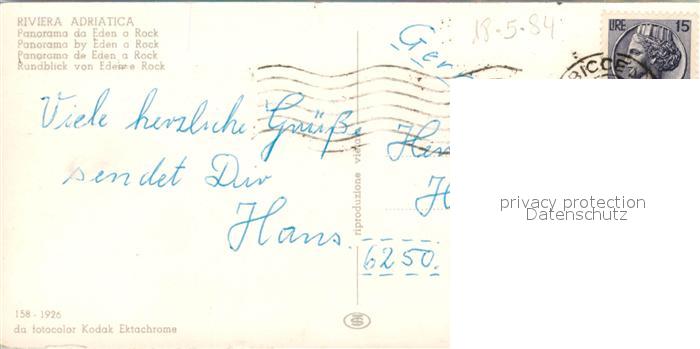 RIVIERA ADRIATICA
Panorama da Eden a Rock
Panorama by Eden a Rock
Panorama de Eden a Rock
Rundblick von Eden e Rock
18-5.84
LIRE 15
BICCE
Ger
Viele herzliche Grüße
sendet Dir
Hans.
riproduzione vietata
6250.
privacy protection
Datenschutz
158 - 1926
da fotocolor Kodak Ektachrome